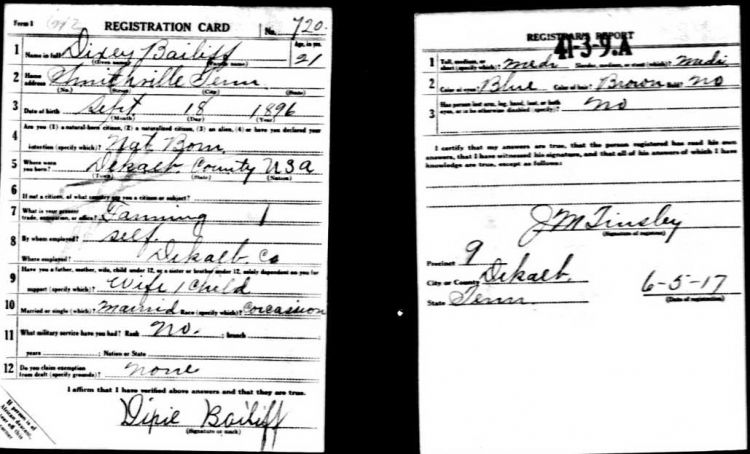 Form 1 REGISTRATION CARD No. 720
1 Name in full Dixey Bailiff Age, in yrs. 21
(Given name) (Family name)
2 Home address Smithville Tenn
(No.) (Street) (City) (State)
3 Date of birth Sept 18 1896
(Month) (Day) (Year)
4 Are you (1) a natural-born citizen, (2) a naturalized citizen, (3) an alien, (4) or have you declared your
intention (specify which)? Nat Born
5 Where were you born? Dekalb County USA
(Town) (State) (Nation)
6 If not a citizen, of what country are you a citizen or subject?
7 What is your present trade, occupation, or office? Farming 1
8 By whom employed? self
Where employed? Dekalb Co
9 Have you a father, mother, wife, child under 12, or a sister or brother under 12, solely dependent on you for
support (specify which)? Wife 1 Child
10 Married or single (which)? Married Race (specify which)? Corcassion
11 What military service have you had? Rank No. ; branch
years ; Nation or State
12 Do you claim exemption from draft (specify grounds)? none
I affirm that I have verified above answers and that they are true.
Dixie Bailiff
(Signature or mark)
If person is of
African descent,
tear off this
corner
REGISTRAR'S REPORT
41-3-9.A
1 Tall, medium, or short (specify which)? Medi Slender, medium, or stout (which)? Medi
2 Color of eyes? Blue Color of hair? Brown Bald? No
3 Has person lost arm, leg, hand, foot, or both eyes, or is he otherwise disabled (specify)? No
I certify that my answers are true, that the person registered has read his own
answers, that I have witnessed his signature, and that all of his answers of which I have
knowledge are true, except as follows:
J M Tinsley
(Signature of registrar)
Precinct 9
City or County Dekalb.
State Tenn
6-5-17
(Date of registration)